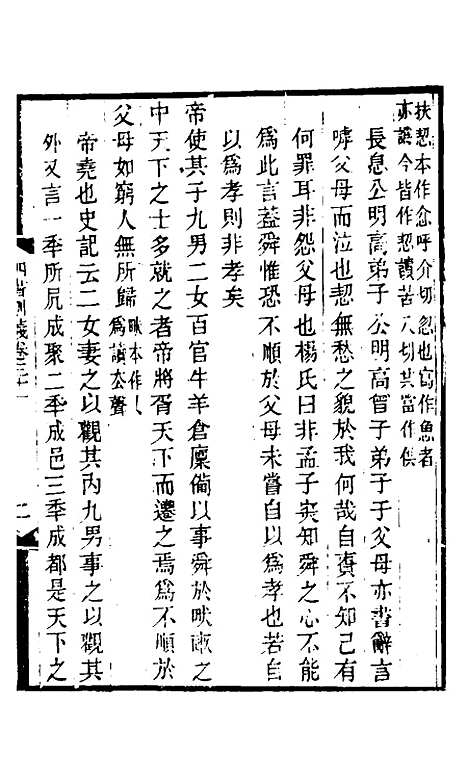 扶恝本作忿呼介切忽也寫作魚者
亦誤今皆作恝讀苦八切共當作供
長息公明高弟子公明高曾子弟子于父母亦書辭言
嘑父母而泣也恝無愁之貌於我何哉自責不知己有
何罪耳非怨父母也楊氏曰非孟子突知舜之心不能
爲此言葢舜惟恐不順於父母未嘗自以爲孝也若自
以爲孝則非孝矣
帝使其子九男二女百官牛羊倉廩僃以事舜於畎畝之
中天下之士多就之者帝將胥天下而遷之焉爲不順於
父母如窮人無所歸畎本作𡿨
爲讀去聲
帝堯也史記云二女妻之以觀其内九男事之以觀其
外又言一秊所凥成聚二秊成邑三秊成都是天下之
四書 義卷
二